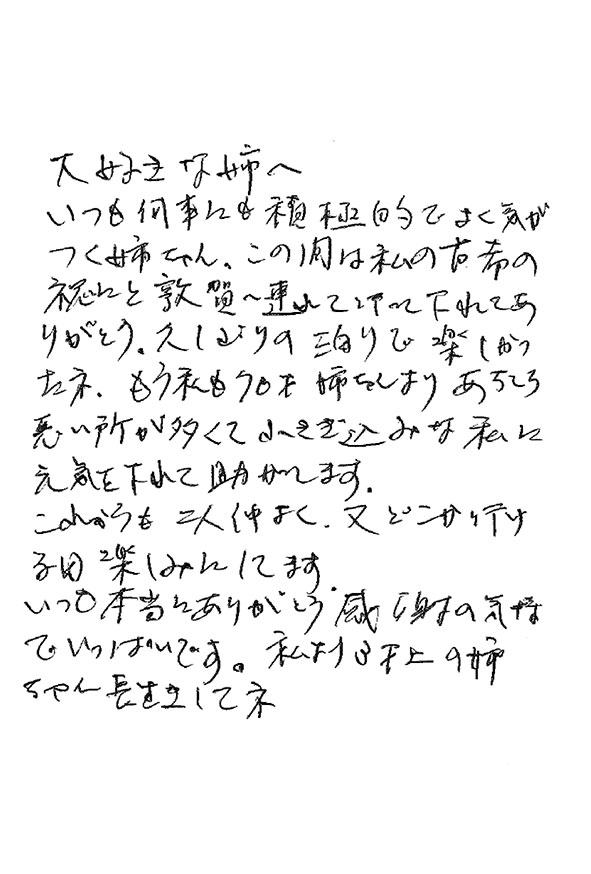 大好きな姉へ
いつも何事にも積極的でよく気が
つく姉ちゃん、この間は私の古希の
祝にと敦賀へ連れて行って下れてあ
りがとう。久しぶりの泊りで楽しかっ
たネ、もう私も70才 姉ちゃんよりあちこち
悪い所が多くてふさぎ込みな私に
元気を下れて助かってます。
これからも二人仲よく、又どこか行け
る日楽しみにしてます。
いつも本当にありがとう感謝の気持
でいっぱいです。私より3才上の姉
ちゃん長生きしてネ